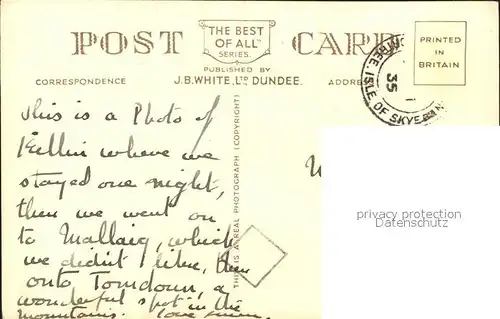 POST CARD
THE BEST
OF ALL"
SERIES.
PUBLISHED BY
J.B. WHITE, LTD DUNDEE.
CORRESPONDENCE
ADDRESS
PRINTED
IN
BRITAIN
TREE. ISLE OF SKYE
35
THIS IS A REAL PHOTOGRAPH (COPYRIGHT)
This is a Photo of
Killin where we
stayed one night,
then we went on
to Mallaig, which
we didnt like, then
onto Tomdoun, a
wonderful spot in the
mountains. love from.
privacy protection
www.